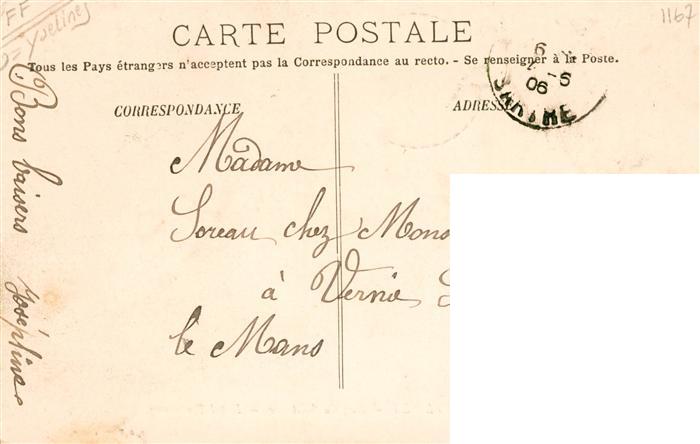 FF
Yvelines
1167
CARTE POSTALE
Tous les Pays étrangers n'acceptent pas la Correspondance au recto. - Se renseigner à la Poste.
CORRESPONDANCE
ADRESS
06
SARTHE
Madame
Soreau chez Mons
à Vernie
le Mans
Bons baisers Joséphine